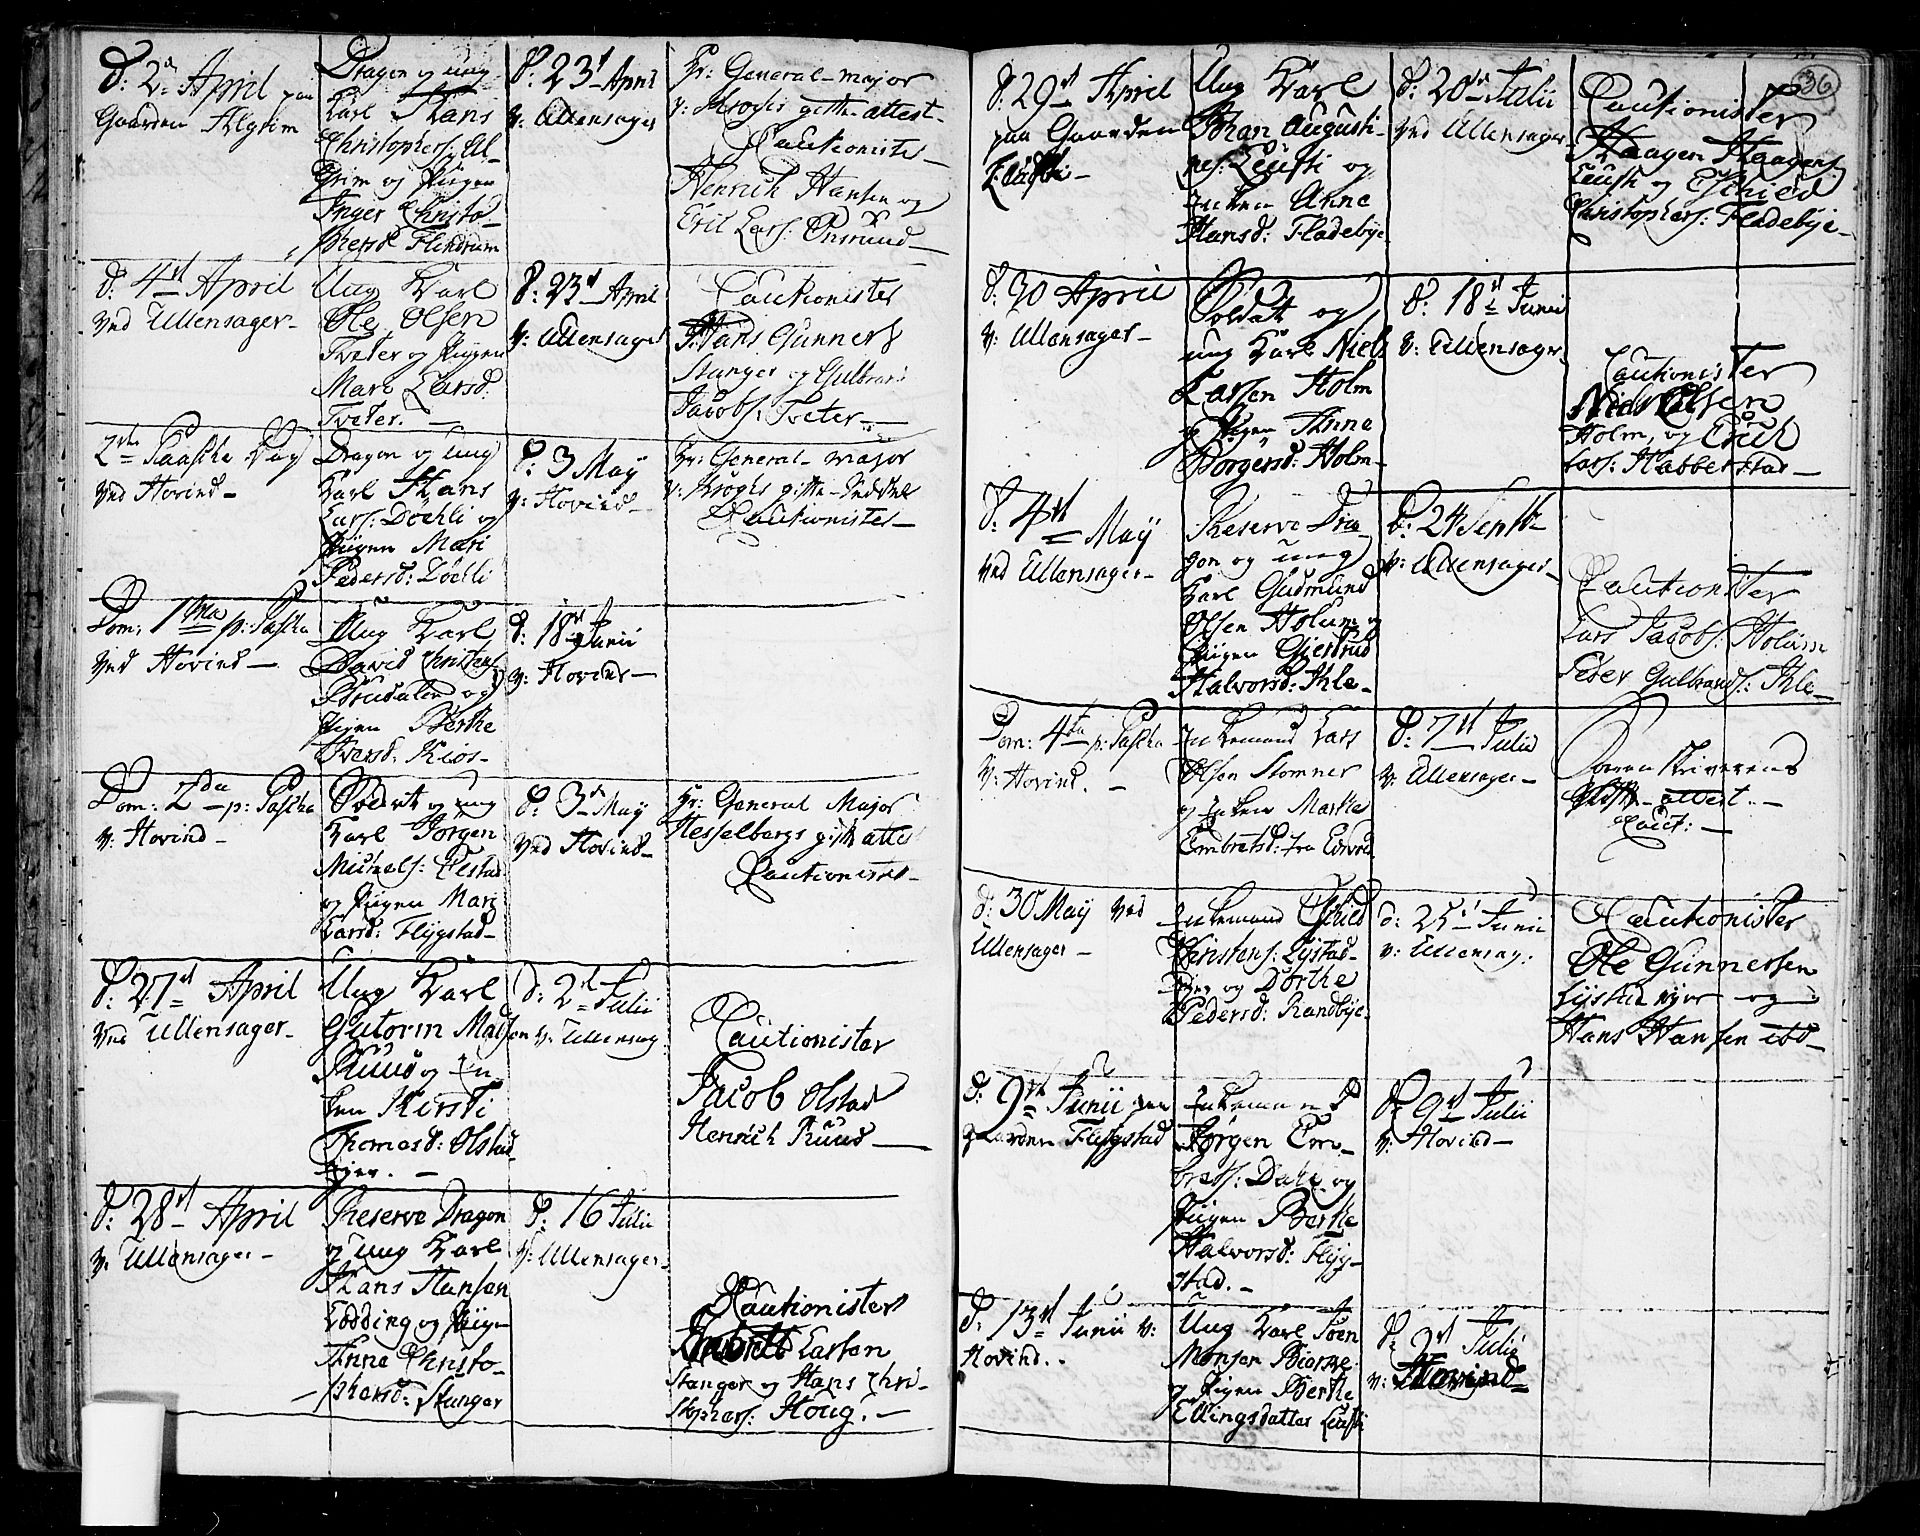 d: 2den April paa
Gaarden Algrim
Dragon og ung
Karl Hans
Christophers: Al-
grim og Pigen
Inger Christo-
phersd: Flindrum
d: 23de April
v: Ullensager
Hr: General-major
v: Kroghs gifte-attest-
Cautionister
Henrich Hansen og
Eric Lars: Onsrund-
d: 4de April
ved Ullensager-
Ung Karl
Ole Olsen
Tveter og Pigen
Mari Larsd:
Tveter.-
d: 23de April
v: Ullensager
Cautionister
Hans Gunners
Stanger og Gulbran
Jacobs: Tveter-
2den Paasche Dag
ved Hovind-
Dragon og ung
Karl Hans
Lars: Døehli og
Pigen Mari
Pedersd: Døehli
d: 3 May
v: Hovind-
Hr: General-major
v: Kroghs gifte-Seddel
Cautionister-
Dom: 1ma p: Pascha
ved Hovind-
Ung Karl
David Christens:
Brudalen og
Pigen Berthe
Iversd: Kios-
d: 18de Junii
v: Hovind-
Dom: 2da p: Pascha
v: Hovind-
Soldat og ung
Karl Jörgen
Michels: Elstad
og Pigen Mari
Larsd: Flÿgstad-
d: 3de May
ved Hovind-
Hr: General Major
Hesselbergs gifte attest
Cautionister-
d: 27de April
ved Ullensager-
Ung Karl
Gutorm Madsen
Ruud og En-
ken Kirsti
Thomasd: Olstad-
Ejer.-
d: 2den Julii
v: Ullensag:
Cautionister
Jacob Olstad
Henrich Ruud-
d: 28de April
v: Ullensager-
Reserve Dragon
og ung Karl
Hans Hansen
Lodding og Pige
Anne Christo-
phersd: Stanger
d: 16 Julii
v: Ullensager-
Cautionister
Larsen
Stanger og Hans Chri-
stophers: Houg.-
36
d: 29de April
paa Gaarden
Leusti-
Ung Karl
Johan Augusti-
nes: Leusti og
Enken Anne
Hansd: Fladebye
d: 20de Julii
ved Ullensager
Cautionister
Haagen Haagens:
Leusti og Eschild
Christophers: Fladebye-
d: 30 April
v: Ullensager-
Soldat og
ung Karl Niels
Larsen Holm
og Pigen Anne
Borgersd: Holm-
d: 18de Junii
v: Ullensager
Cautionister
Niels Olsen
Holm, og Erich
Lars: Habberstad-
d: 4de May
ved Ullensager-
Reserve Dra-
gon og ung
Karl Gudmund
Olsen Holum og
Pigen Giertrud
Halvorsd: Ihle-
d: 24 Septb-
v: Ullensager-
Cautionister
Lars Jacobs: Holum
Peder Gulbrands: Ihle-
Dom: 4ta p: Pascha
v: Hovind.-
Enkemand Lars
Olsen Stomner
og Enken Marthe
Embretsd: fra
d: 7de Julii
v: Ullensager-
Soren Skriverens
attest.-
Caut:-
d: 30 May ved
Ullensager-
Enkemand Eschild
Christens: Lystad-
Ejer og Dorthe
Pedersd: Randbye-
d: 25de Junii
v: Ullensag:
Cautionister
Ole Gunnersen
Lystad ejer og
Hans Hansen ibd-
d: 9de Junii paa
Gaarden Flÿgstad
Enkemand
Jörgen Em-
brets: Dahl og
Pigen Berthe
Halvorsd: Flÿg-
stad.-
d: 9de Julii
v: Hovind-
d: 13de Junii v:
Hovind.-
Ung Karl Soen
Monsen Bierke
og Pigen Berthe
Ellingsdatter Leusti
d: 2de Julii
v: Hovind-